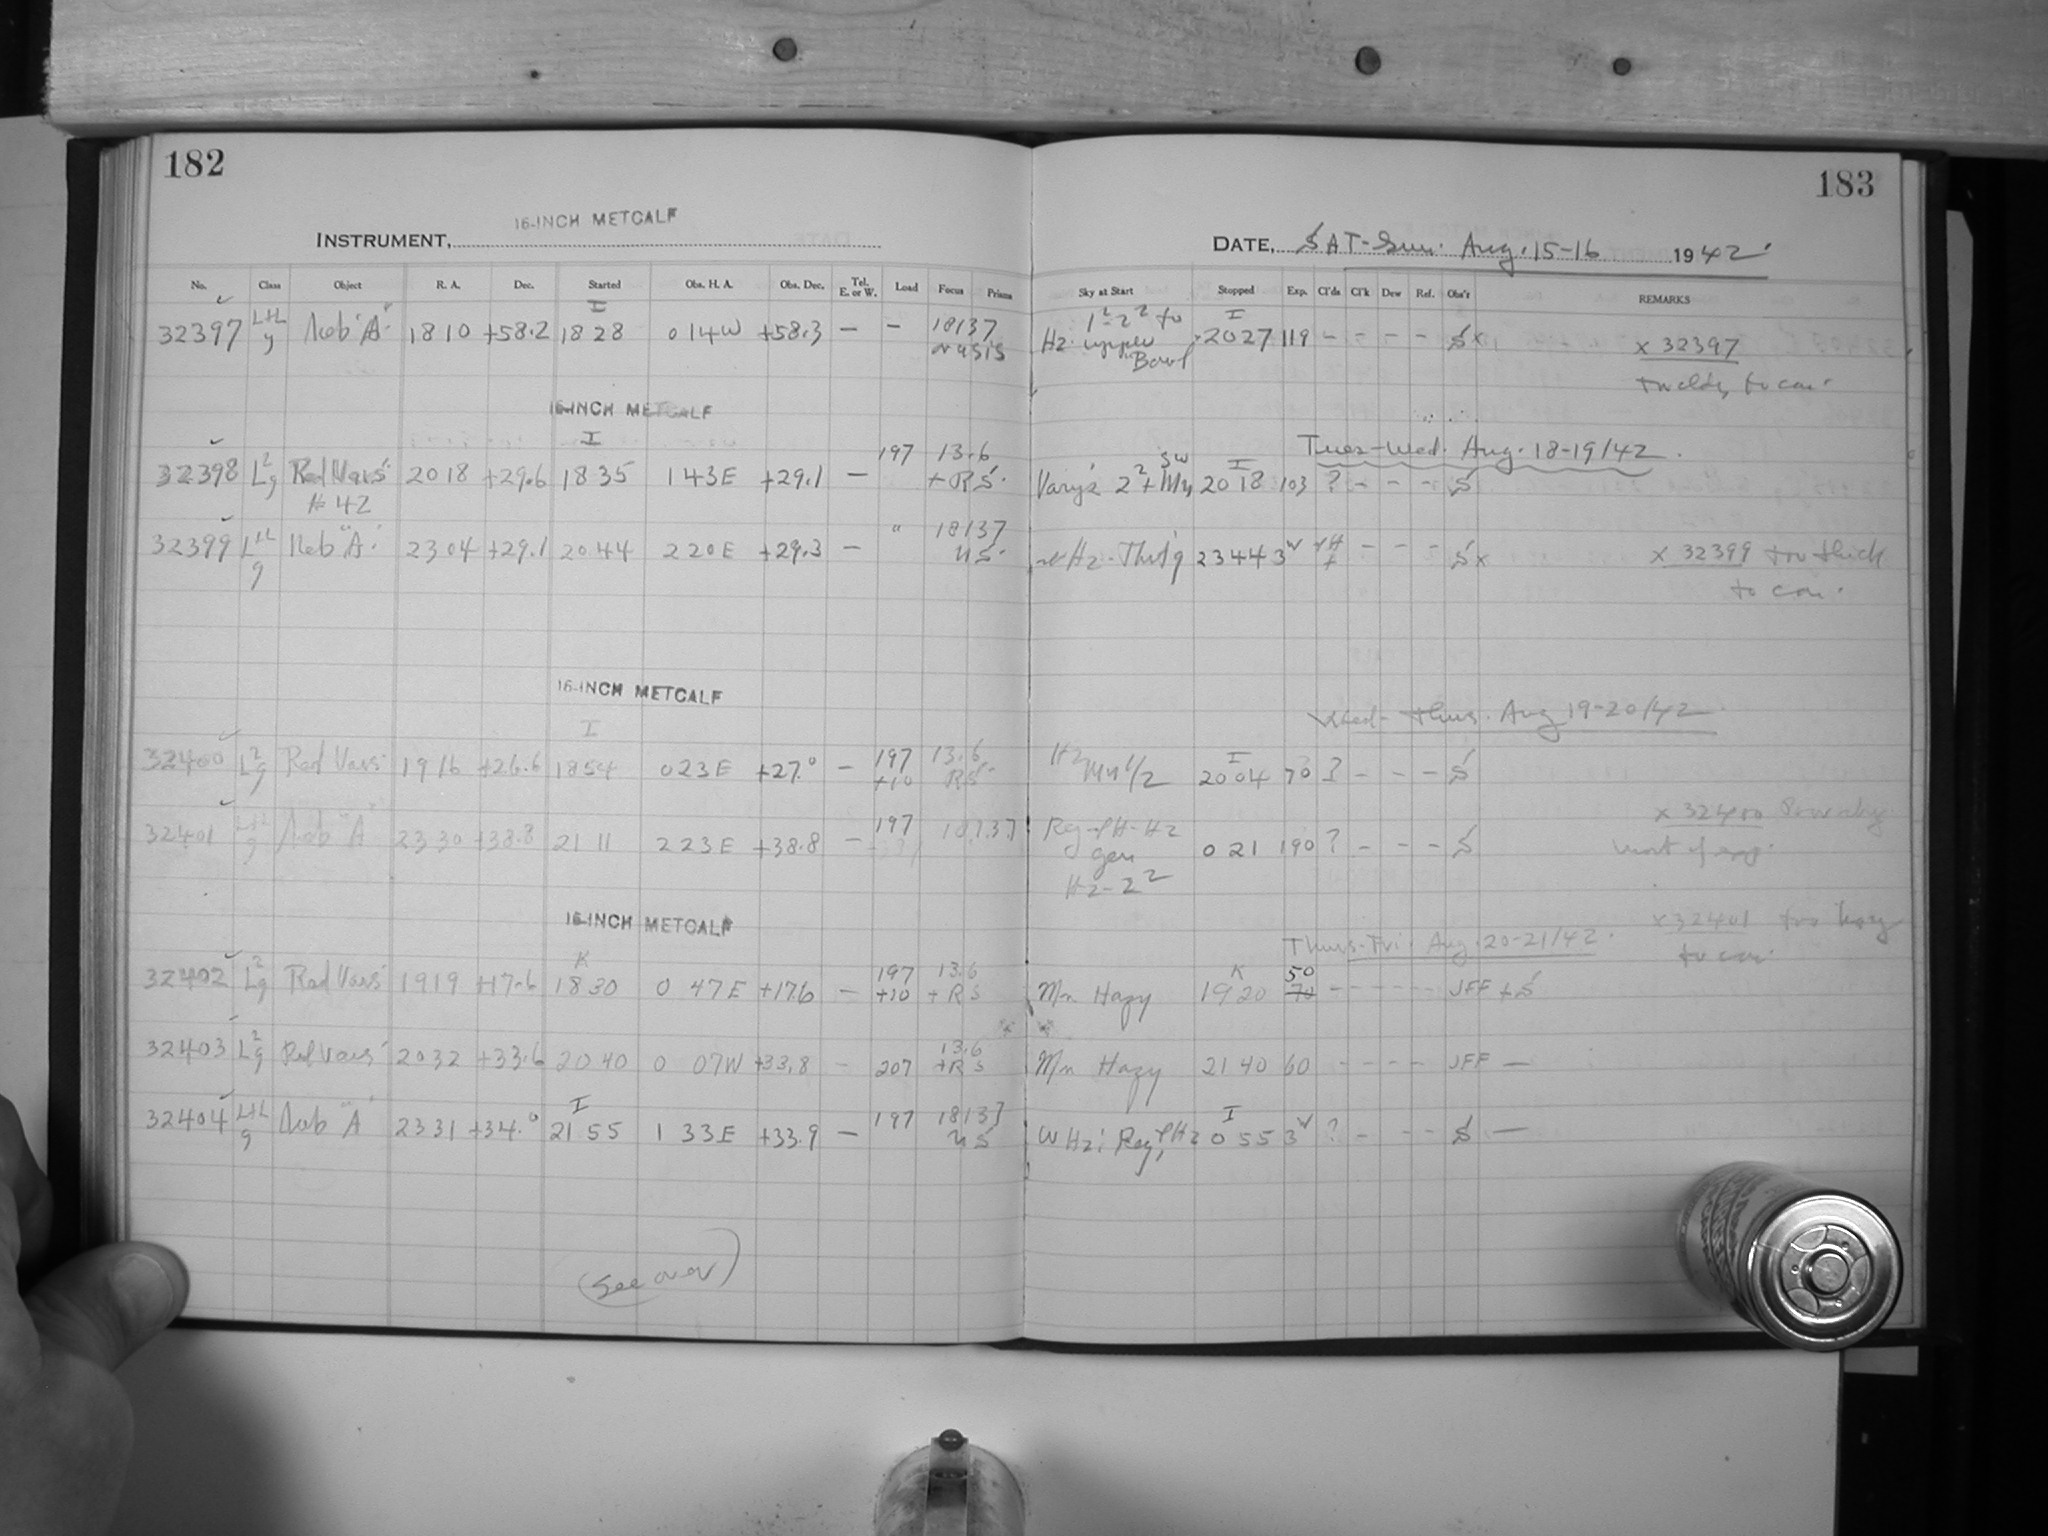 182
183
INSTRUMENT, 16-INCH METCALF
DATE, SAT-Sun. Aug. 15-16 1942.
No. Class Object R. A. Dec. Started Obs. H. A. Obs. Dec. Tel. E. or W. Load Focus Prism Sky at Start Stopped Exp. Cl'ds Cl'k Dew Ref. Obs'r REMARKS
32397 Neb "A" 18 10 +58.2 I 18 28 0 14 W +58.3 — — 18137 Hz. upper Bowl I 2027 119 - - - - S x x 32397
to con.
16-INCH METCALF
Tues-Wed. Aug. 18-19/42
32398 L2g Red Vars # 42 20 18 +29.6 I 18 35 1 43 E +29.1 — 197 13.6 + RS. I 20 18 103 ? - - - S
32399 Neb "A" 23 04 +29.1 20 44 2 20 E +29.3 — " 18137 23 44 - - - S x x 32399 too thick
to con.
16-INCH METCALF
Wed-Thus. Aug 19-20/42
32400 L2g Red Vars 19 16 +26.6 I 18 54 0 23 E +27.0 — 197 +10 13.6 RS Hz I 20 04 70 ? - - - S
32401 Neb "A" 23 30 +38.8 21 11 2 23 E +38.8 — 197 18137 gen Hz-2 2 0 21 190 ? - - - S x 32400
most of exp.
16-INCH METCALF
x 32401 too hazy
to con
Thurs-Fri. Aug. 20-21/42.
32402 L2g Red Vars 19 19 +17.6 K 18 30 0 47 E +17.6 — 197 +10 13.6 + RS Mn Hazy K 19 20 50 70 - - - - JFF + S
32403 L2g Red Vars 20 32 +33.6 20 40 0 07 W +33.8 - 207 13.6 +RS Mn Hazy 21 40 60 - - - - JFF —
32404 L+L g Neb "A" 23 31 +34.0 I 21 55 1 33 E +33.9 — 197 18137 I 0 55 ? - - - S —
(See over)